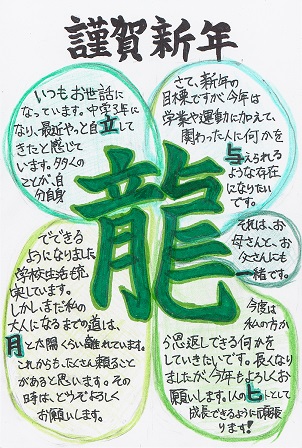 謹賀新年
いつもお世話に
なっています。中学3年に
なり、最近やっと自立して
きたと感じて
います。多くの
ことが、自
分自身
でできる
ようになりました
学校生活も充
実しています。
しかし、まだ私の
大人になるまでの道は、
月と太陽くらい離れています。
これからも、たくさん頼ること
があると思います。その
時は、どうぞよろしく
お願いします。
龍
さて、新年の
目標ですが、今年は
学業や運動に加えて、
関わった人に何かを
与えられる
ような存在
になりたい
です。
それは、お
母さんと、お
父さんにも
一緒です。
今度は
私の方か
ら恩返しできる何かを
していきたいです。長くなり
ましたが、今年もよろしくお
願いします。1人のヒトとして
成長できるように頑張
ります!